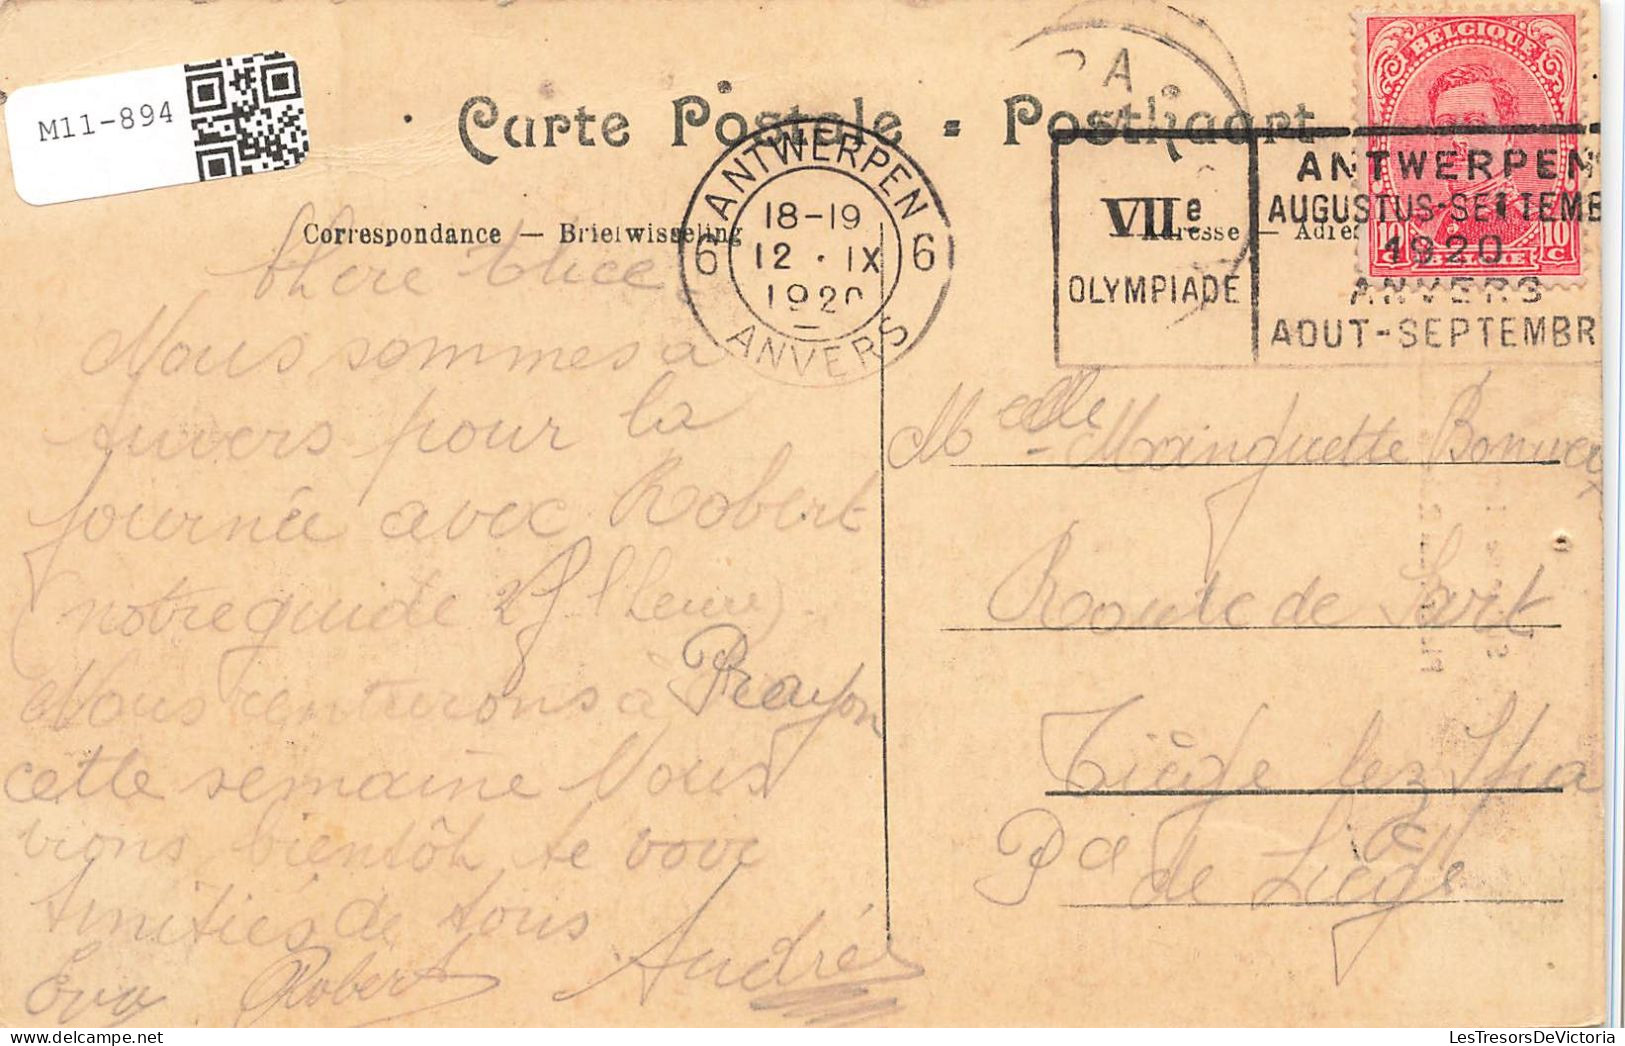 M11-894
Carte Postale - Postkaart
Correspondance — Briefwisseling
Adresse — Adres
ANTWERPEN
6 6
18-19
12 · IX
1920
ANVERS
VIIe
OLYMPIADE
ANTWERPEN
AUGUSTUS-SEPTEMB
1920
ANVERS
AOUT-SEPTEMBR
BELGIQUE
10 c 10 c
BELGIË
Chère Alice,
Nous sommes à
Anvers pour la
journée avec Robert
(notre guide l'heure).
Nous rentrerons à Prayon
cette semaine Nous
irons bientôt te voir
Amitiés de tous
Eva Robert Andrée
Melle
Route de Sart
Tiège lez Spa
Pce de Liège
LesTresorsDeVictoria